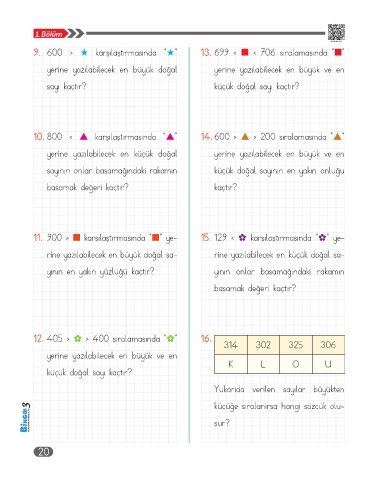 1. Bölüm
9. 600 > ★ karşılaştırmasında "★"
yerine yazılabilecek en büyük doğal
sayı kaçtır?
10. 800 < ▲ karşılaştırmasında "▲"
yerine yazılabilecek en küçük doğal
sayının onlar basamağındaki rakamın
basamak değeri kaçtır?
11. 900 > ■ karşılaştırmasında "■" ye-
rine yazılabilecek en büyük doğal sa-
yının en yakın yüzlüğü kaçtır?
12. 405 > ✿ > 400 sıralamasında "✿"
yerine yazılabilecek en büyük ve en
küçük doğal sayı kaçtır?
13. 699 < ■ < 706 sıralamasında "■"
yerine yazılabilecek en büyük ve en
küçük doğal sayı kaçtır?
14. 600 > ▲ > 200 sıralamasında "▲"
yerine yazılabilecek en büyük ve en
küçük doğal sayının en yakın onluğu
kaçtır?
15. 129 < ✿ karşılaştırmasında "✿" ye-
rine yazılabilecek en küçük doğal sa-
yının onlar basamağındaki rakamın
basamak değeri kaçtır?
16.
314 302 325 306
K L O U
Yukarıda verilen sayılar büyükten
küçüğe sıralanırsa hangi sözcük olu-
şur?
BİNGO 3
20